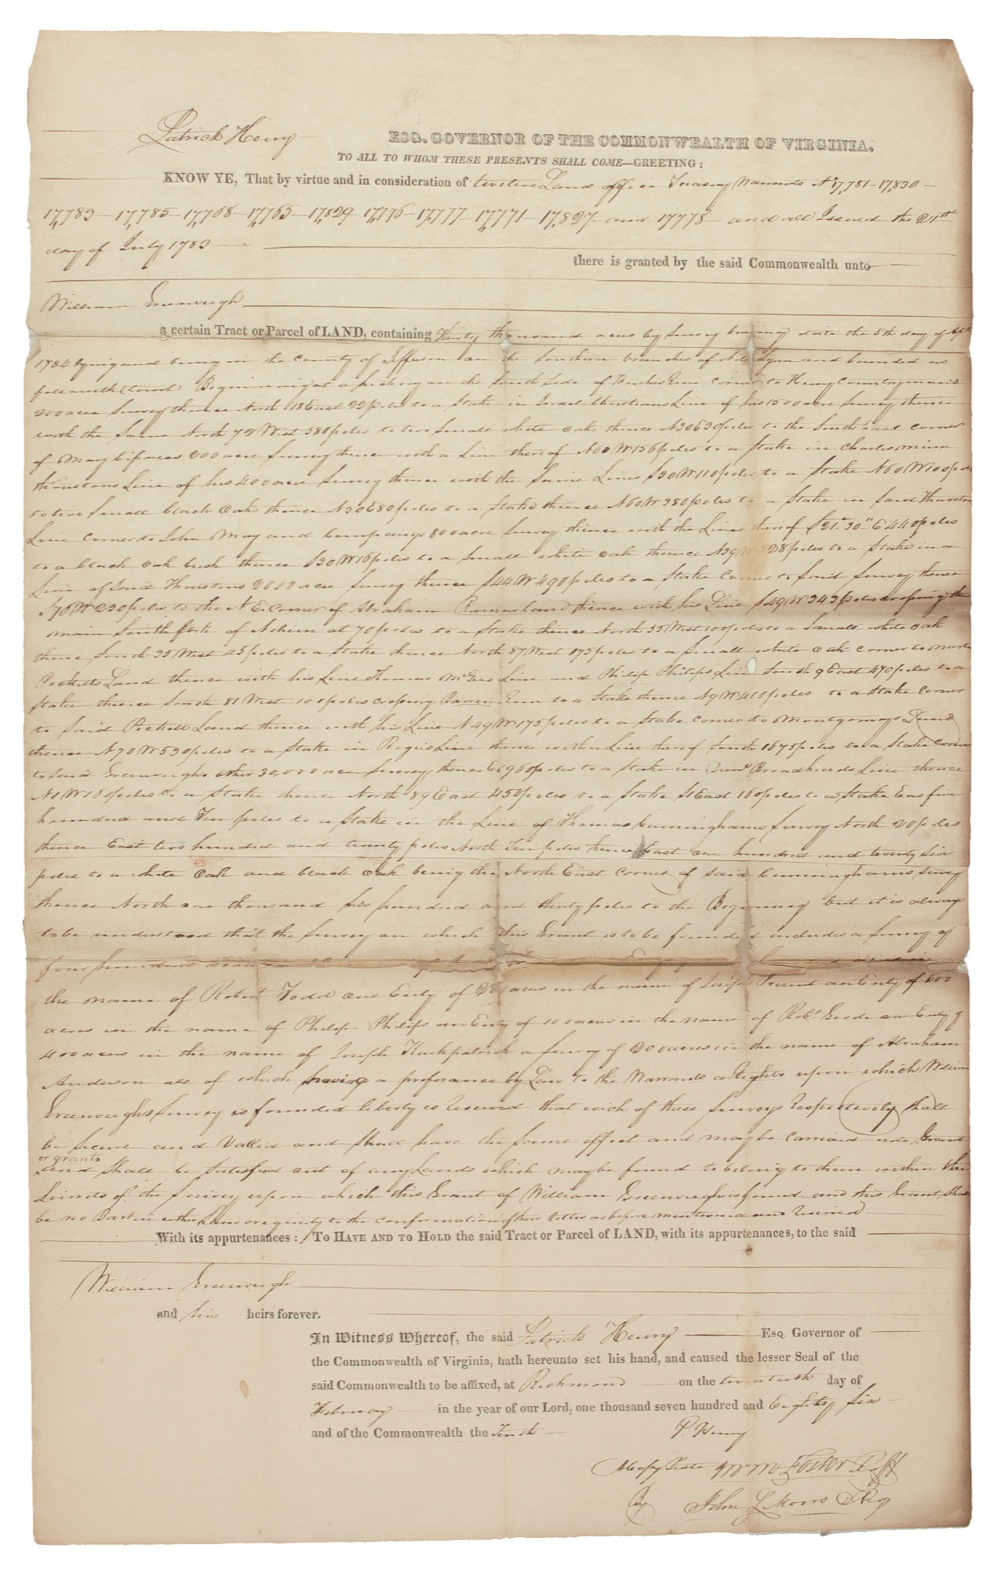 Patrick Henry ESQ. GOVERNOR OF THE COMMONWEALTH OF VIRGINIA,
TO ALL TO WHOM THESE PRESENTS SHALL COME—GREETING:
KNOW YE, That by virtue and in consideration of twelve Land office Treasury Warrants No 17,781 - 17,830 -
17,783 - 17,785 - 17,768 - 17,765 - 17,829 17,776 - 17,777 - 17,771 - 17,827 - and 17778 - and all Issued the 21st
day of July 1783
there is granted by the said Commonwealth unto
William Greenough
a certain Tract or Parcel of LAND, containing thirty thousand acres by Survey bearing date the 5th day of
1784 lying and being in the County of Jefferson on the Southern branches of and bounded as
followeth (towit) Beginning at a on the South side of corner to Henry
200 acre Survey thence North 18 East 22 poles to a Stake in Israel Christians Line of his 1500 acre Survey thence
with the Same North 72 West 380 poles to two Small white oaks thence N30E 30 poles to the South East corner
of May 600 acre Survey thence with a Line thereof N60W 156 poles to a Stake in Charles
thrustons Line of his 400 acre Survey thence with the Same Lines S30W 110 poles to a Stake N60W 100 poles
to two Small black Oaks thence N30E 80 poles to a Stake thence N60W 380 poles to a Stake in Said Thurstons
Line corner to John May and Companys 800 acre Survey thence with the Line thereof S21.30" E 440 poles
to a black oak bush thence S30W 16 poles to a Small white oak thence N39W 128 poles to a Stake in a
Line of Said Thurstons 2000 acre Survey thence S44W 490 poles to a Stake corner to Said Survey thence
S70W 230 poles to the N E Corner of Abraham Land thence with his Line S49W 343 poles crossing the
main South fork of at 70 poles to a Stake thence North 35 West 100 poles to a Small white oak
thence South 35 West 45 poles to a Stake thence North 87 West 173 poles to a Small white oak corner to
Land thence with his Line Thomas Line and Philip Philips Line South 9 East 470 poles to a
Stake thence South 81 West 100 poles crossing Barren Run to a Stake thence N9W 410 poles to a Stake corner
to Said Land thence with his Line N49W 175 poles to a Stake corner to Montgomerys Land
thence N70W 530 poles to a Stake in Line thence with a Line thereof South 1675 poles to a Stake corner
to Said Greenoughs other 30,000 acre Survey thence E 960 poles to a Stake in Broadheads Line thence
N1W 160 poles to a Stake thence North 89 East 450 poles to a Stake S1East 160 poles to a Stake East five
hundred and Ten poles to a Stake in the Line of Thomas Cunninghams Survey North 20 poles
thence East two hundred and twenty poles North Ten poles thence East one hundred and twenty six
poles to a white Oak and black Oak being the North East corner of said Cunninghams Survey
thence North one thousand six hundred and thirty poles to the Beginning but it is always
to be understood that the Survey on which this Grant is to be founded includes a Survey of
four hundred
the name of Robert Todd one Entry of acres in the name of an Entry of 600
acres in the name of Philip Philips an Entry of 1000 acres in the name of Robt. an Entry of
400 acres in the name of Joseph Kirkpatrick a Survey of 300 acres in the name of Abraham
Anderson all of which having a preferance by Law to the Warrants or Rights upon which William
Greenoughs Survey is founded Liberty is reserved that each of these Surveys respectively shall
be secure and Vallid and shall have the Same effect and may be carried into Grant
or grants
and shall be Satisfied out of any Lands which may be found to belong to them within the
Limits of the Survey upon which this Grant of William Greenough is found and this Grant Shall
be no Bar in either Law or equity to the confirmation of their titles as before mentioned and reserved
With its appurtenances: TO HAVE AND TO HOLD the said Tract or Parcel of LAND, with its appurtenances, to the said
William Greenough
and his heirs forever.
In Witness Whereof, the said Patrick Henry Esq. Governor of
the Commonwealth of Virginia, hath hereunto set his hand, and caused the lesser Seal of the
said Commonwealth to be affixed, at Richmond on the twentieth day of
February in the year of our Lord, one thousand seven hundred and Eighty Six
and of the Commonwealth the Tenth
P Henry
A Copy Teste Foster
John L Moore